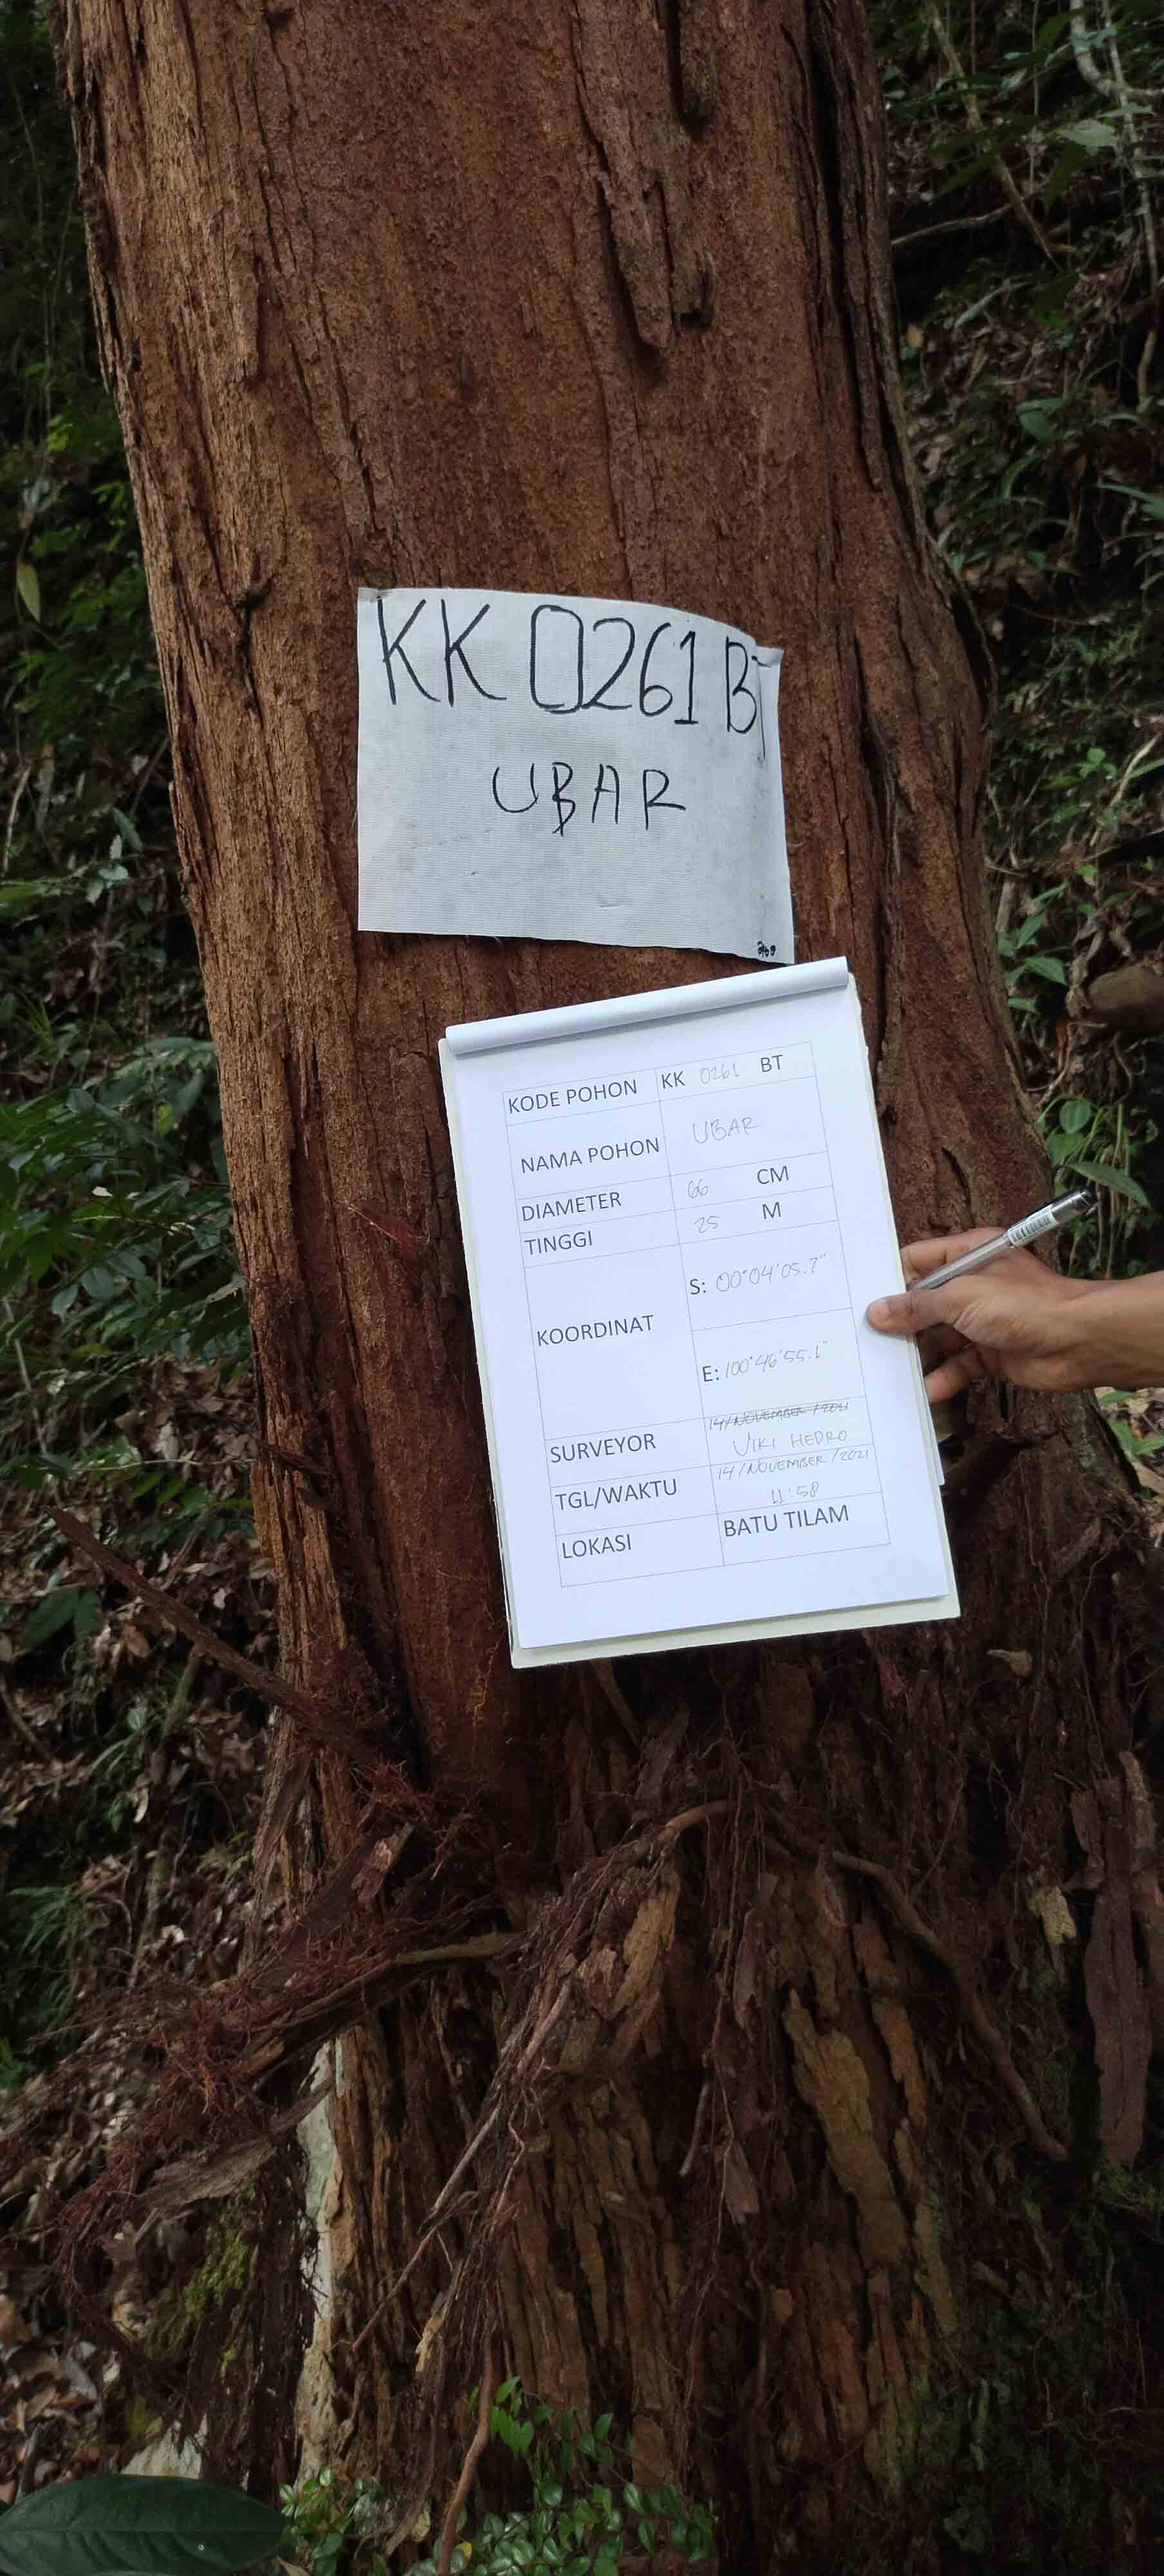 KK 0261 BT
UBAR
KODE POHON KK 0261 BT
NAMA POHON UBAR
DIAMETER 66 CM
TINGGI 25 M
KOORDINAT
S: 00°04'05.7"
E: 100°46'55.1"
14/NOVEMBER/2021
SURVEYOR VIKI HEDRO
TGL/WAKTU 14/NOVEMBER/2021
11:58
LOKASI BATU TILAM